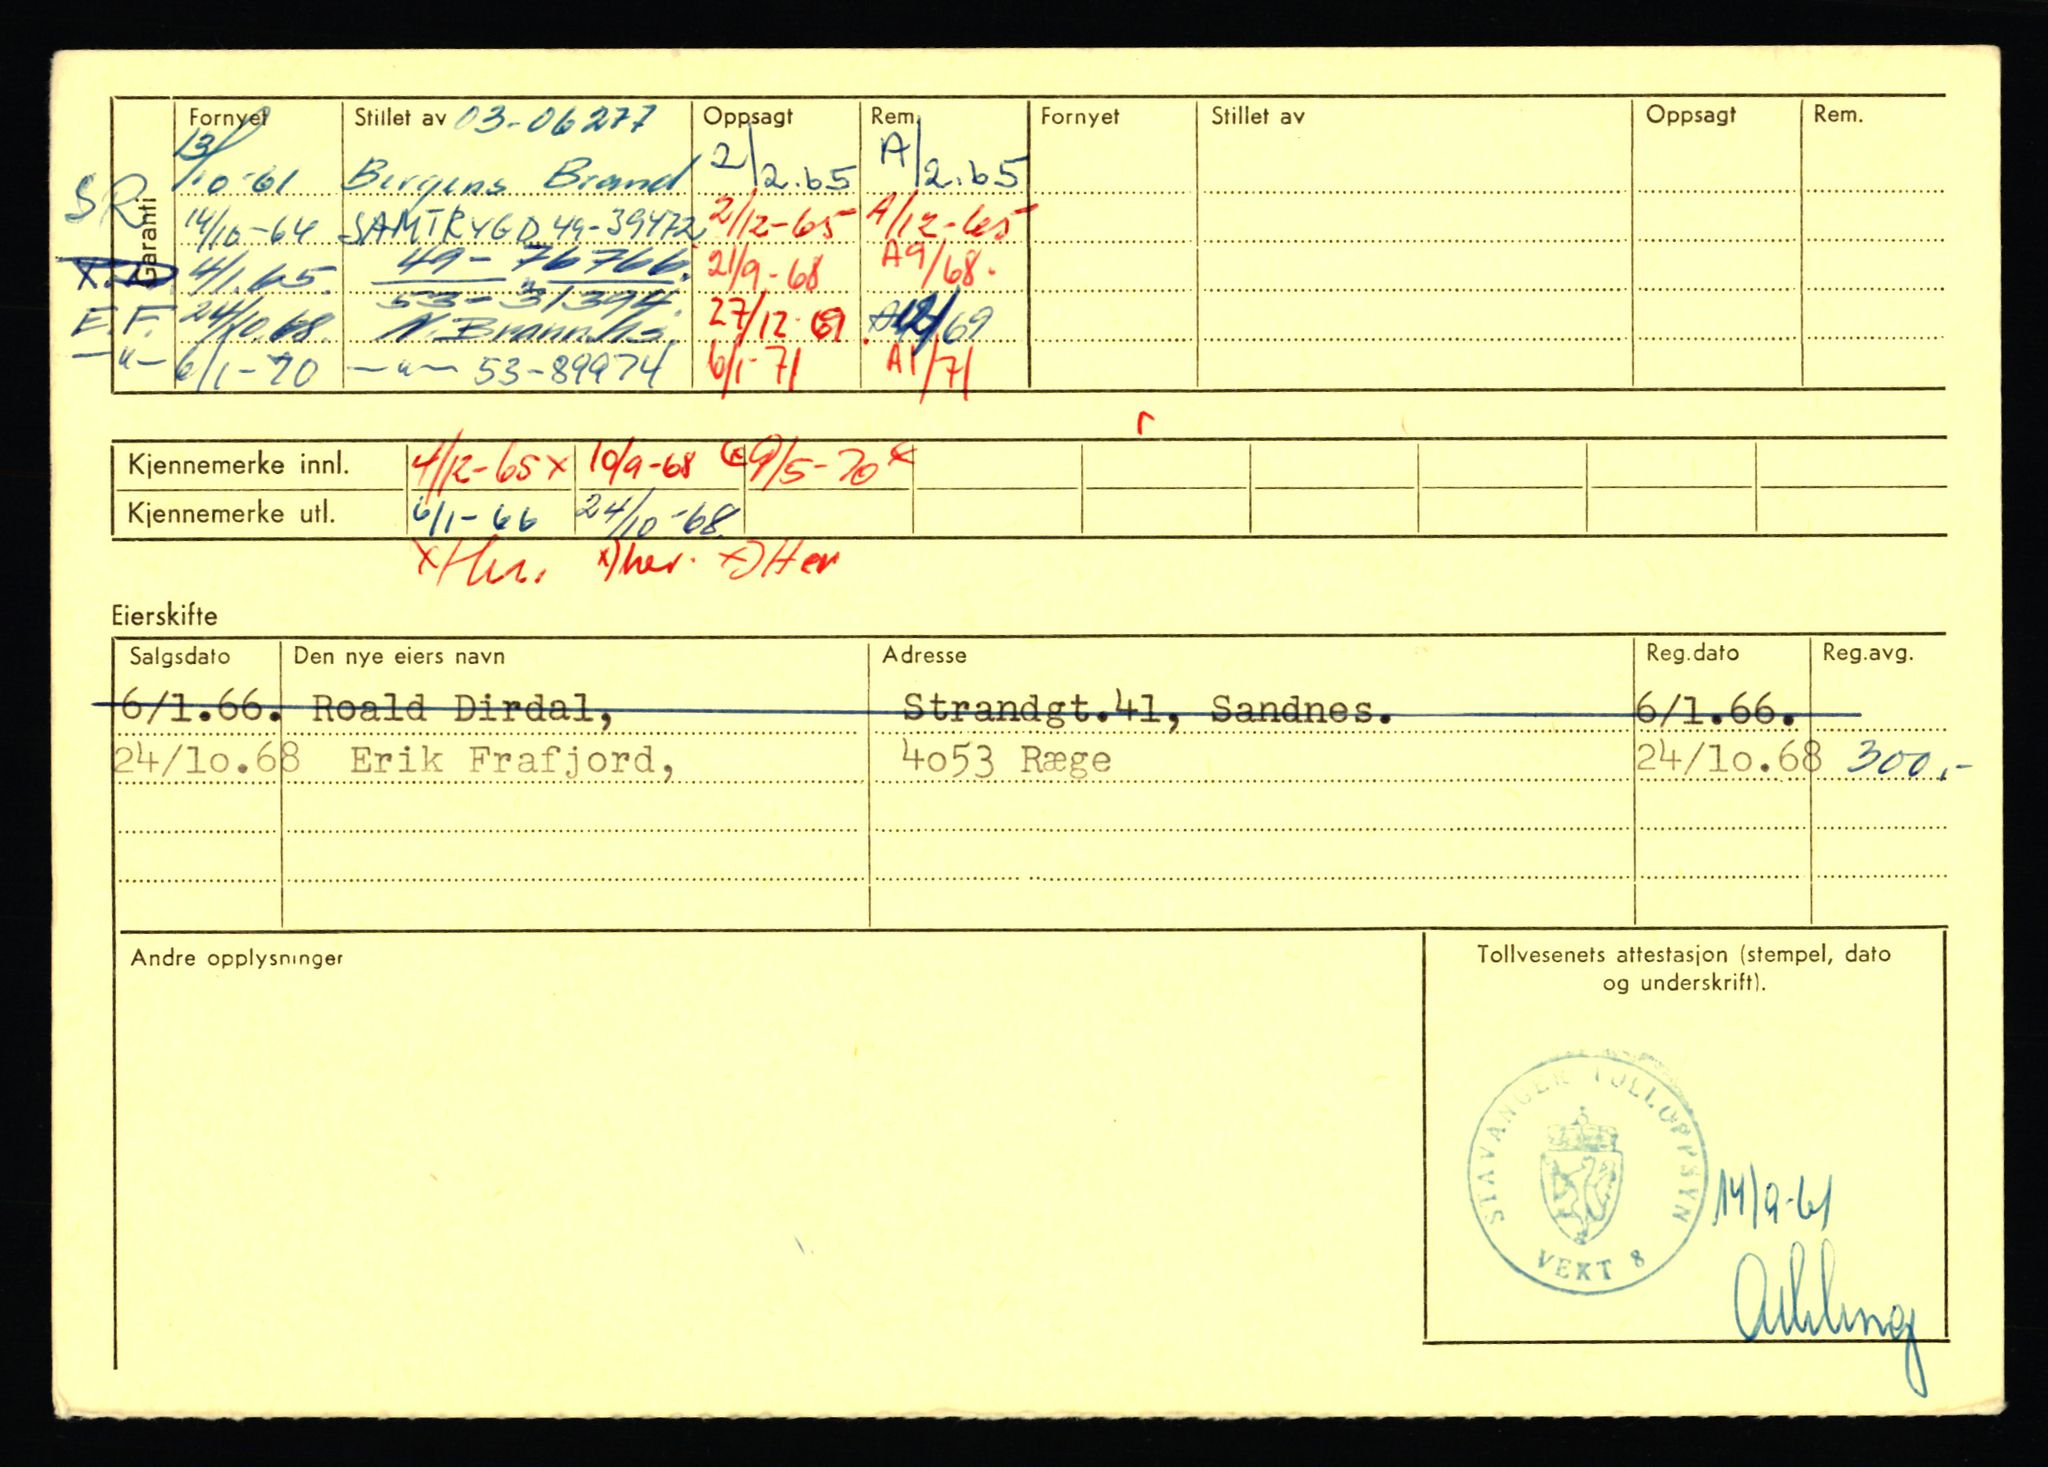 Fornyet Stillet av 03-06277 Oppsagt Rem. Fornyet Stillet av Oppsagt Rem.
13/10-61 Bergens Brand 2/2.65 A/2.65
Garanti
SR 14/10-64 SAMTRYGD 49-39472 2/12-65 A/12-65
4/1.65. 49-76766. 21/9-68 A9/68.
53-31394.
E.F. 24/10.68. N. Brannks. 27/12-69 A12/69
-"- 6/1-70 -"- 53-89974 6/1-71 A1/71
Kjennemerke innl. 4/12-65 x 10/9-68 9/5-70 x
Kjennemerke utl. 6/1-66 24/10-68.
x Her. x) her. x) Her
Eierskifte
Salgsdato Den nye eiers navn Adresse Reg.dato Reg.avg.
6/1.66. Roald Dirdal, Strandgt.41, Sandnes. 6/1.66.
24/1o.68 Erik Frafjord, 4o53 Ræge 24/1o.68 300,-
Andre opplysninger
Tollvesenets attestasjon (stempel, dato
og underskrift).
STAVANGER TOLLOPPSYN
VEKT 8
14/9-61